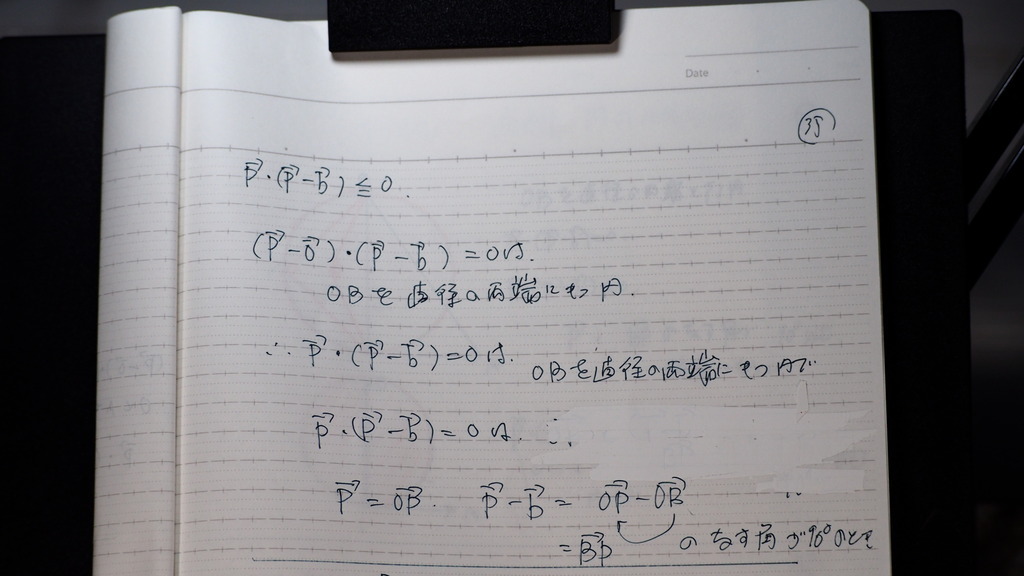 Date
35
P⃗・(P⃗-b⃗)≦0.
(P⃗-0⃗)・(P⃗-b⃗)=0は.
OBを直径の両端にもつ円.
∴ P⃗・(P⃗-b⃗)=0は. OBを直径の両端にもつ円で
P⃗・(P⃗-b⃗)=0は. ∴
P⃗=OB⃗. P⃗-b⃗=OP⃗-OB⃗
=BP⃗ のなす角が90°のとき